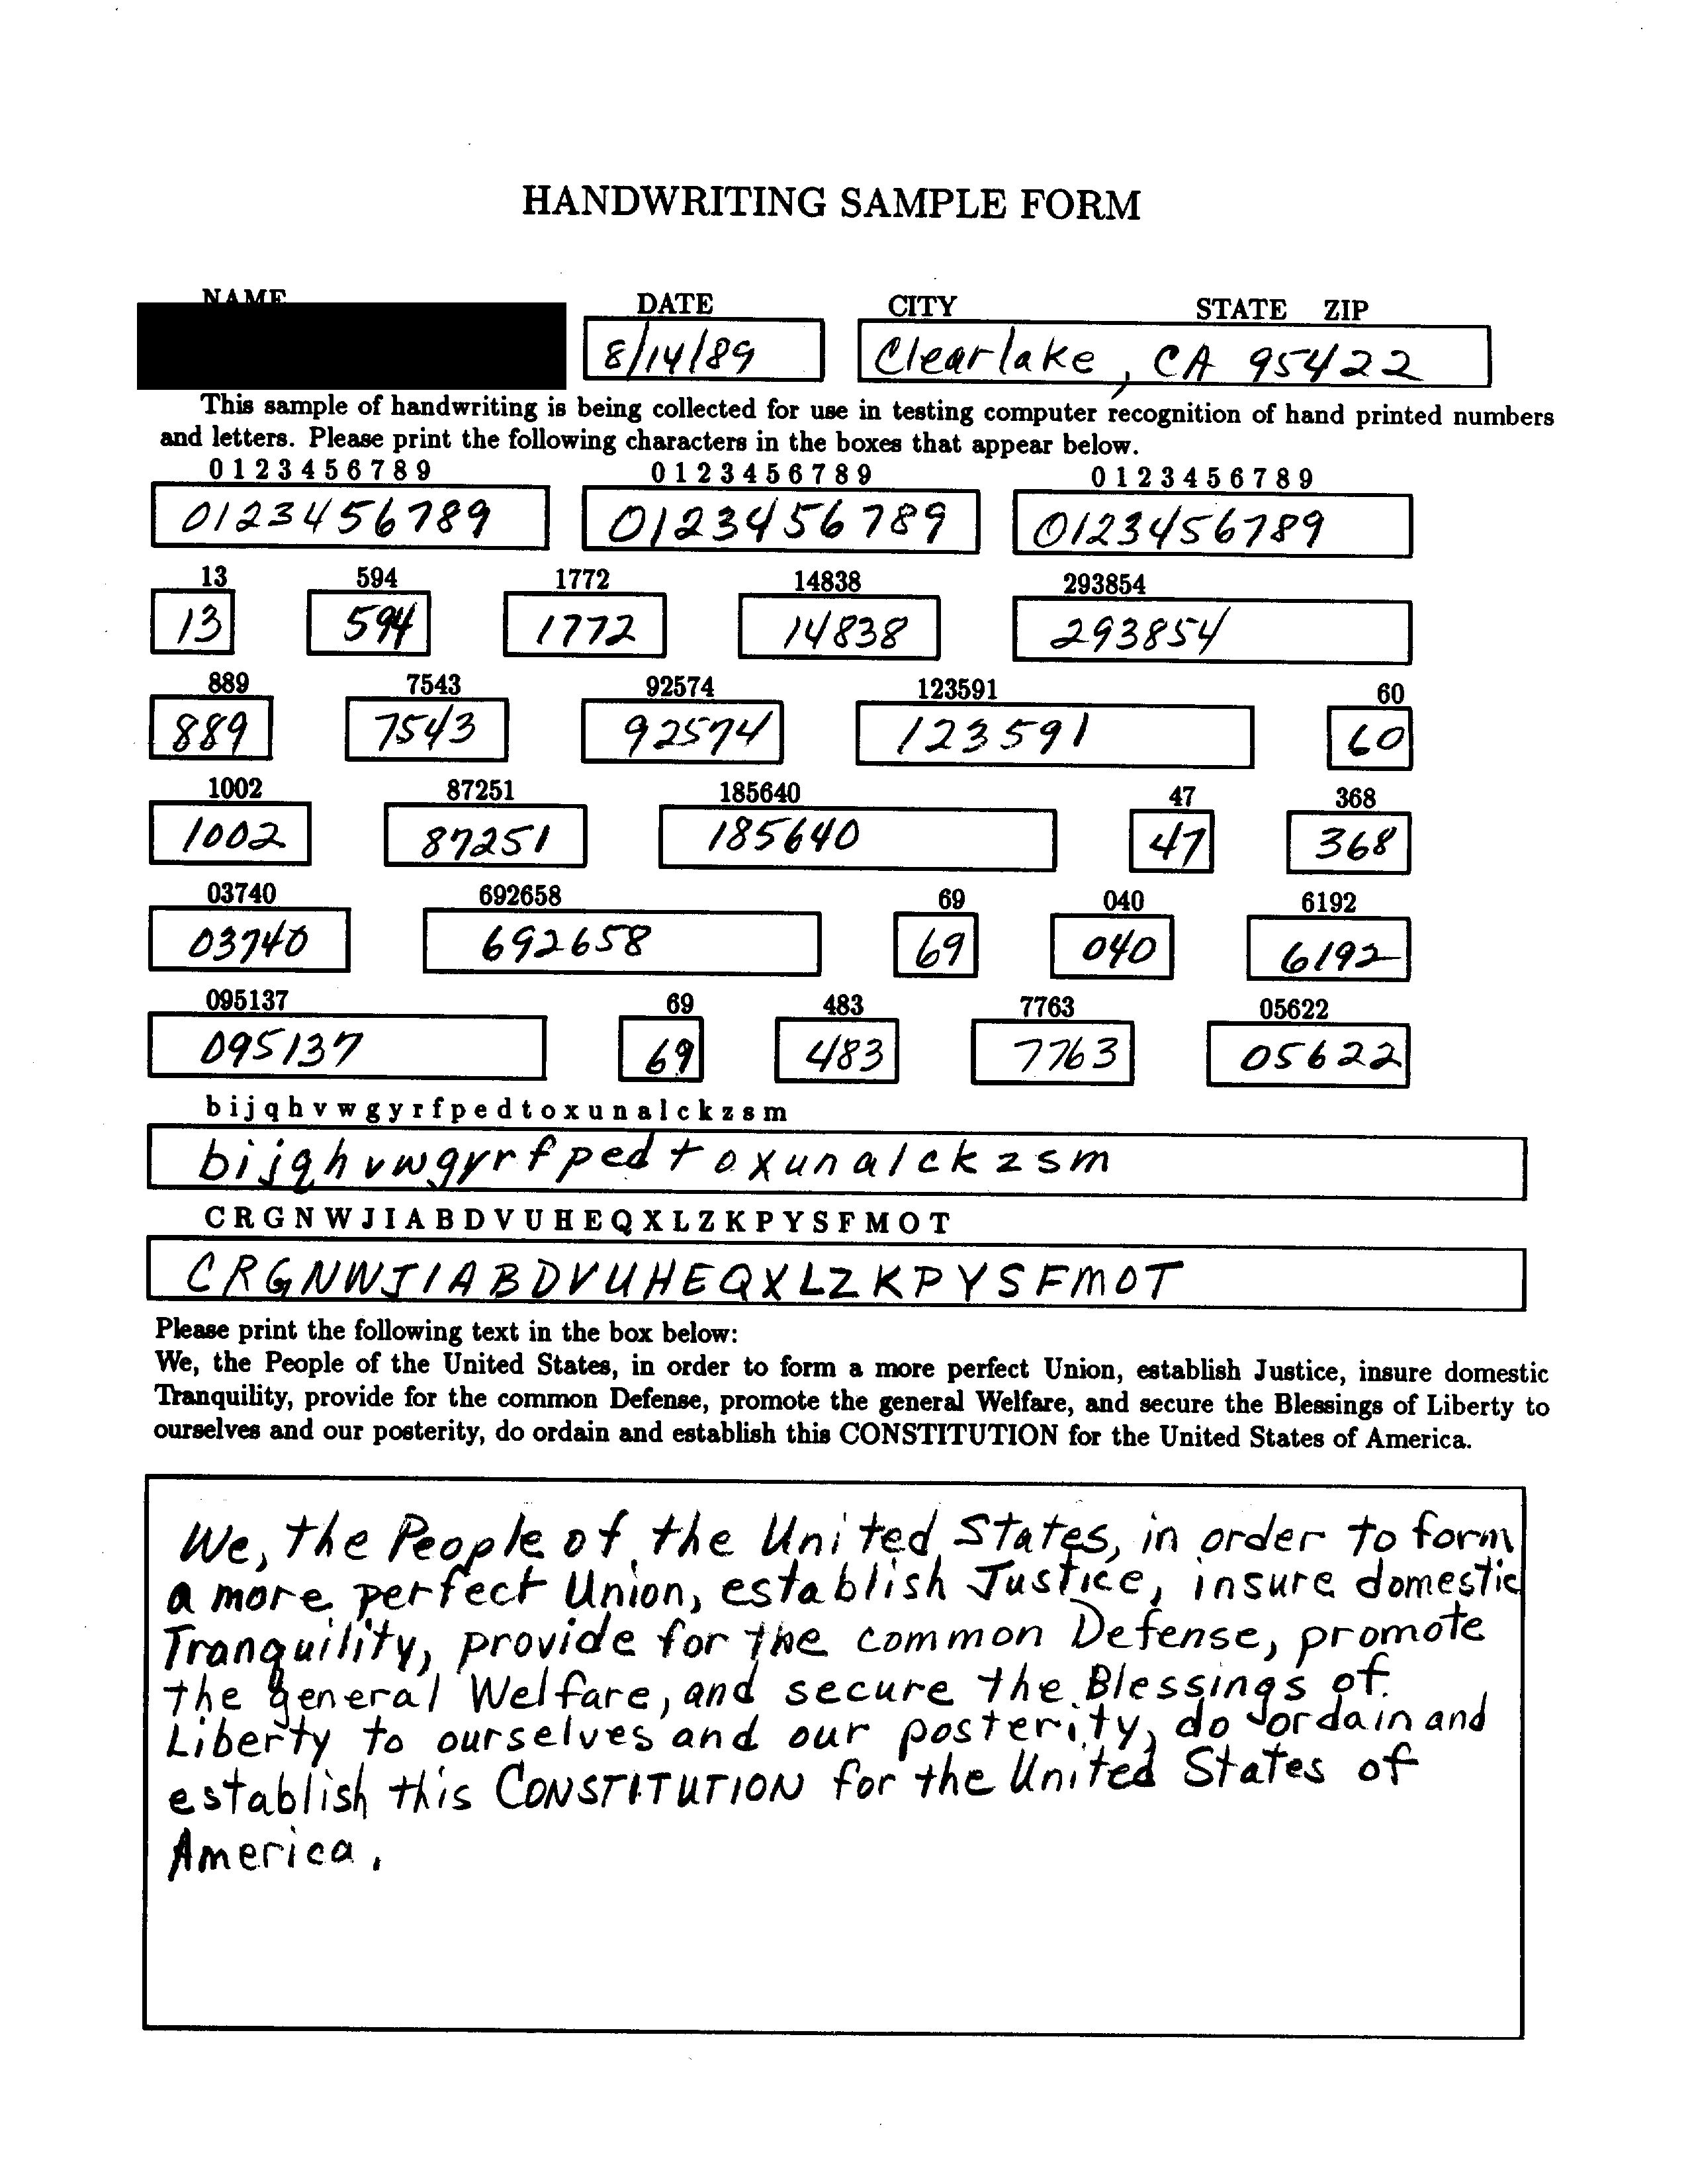 HANDWRITING SAMPLE FORM
NAME DATE CITY STATE ZIP
8/14/89 Clearlake, CA 95422
This sample of handwriting is being collected for use in testing computer recognition of hand printed numbers
and letters. Please print the following characters in the boxes that appear below.
0 1 2 3 4 5 6 7 8 9 0 1 2 3 4 5 6 7 8 9 0 1 2 3 4 5 6 7 8 9
0123456789 0123456789 0123456789
13 594 1772 14838 293854
13 594 1772 14838 293854
889 7543 92574 123591 60
889 7543 92574 123591 60
1002 87251 185640 47 368
1002 87251 185640 47 368
03740 692658 69 040 6192
03740 692658 69 040 6192
095137 69 483 7763 05622
095137 69 483 7763 05622
b i j q h v w g y r f p e d t o x u n a l c k z s m
b i j q h v w g y r f p e d t o x u n a l c k z s m
C R G N W J I A B D V U H E Q X L Z K P Y S F M O T
C R G N W J I A B D V U H E Q X L Z K P Y S F M O T
Please print the following text in the box below:
We, the People of the United States, in order to form a more perfect Union, establish Justice, insure domestic
Tranquility, provide for the common Defense, promote the general Welfare, and secure the Blessings of Liberty to
ourselves and our posterity, do ordain and establish this CONSTITUTION for the United States of America.
We, the People of the United States, in order to form
a more perfect Union, establish Justice, insure domestic
Tranquility, provide for the common Defense, promote
the general Welfare, and secure the Blessings of
Liberty to ourselves and our posterity, do ordain and
establish this CONSTITUTION for the United States of
America.